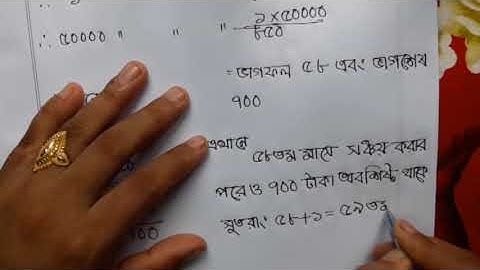 ১ × ৫০০০০
∴ ৫০০০০ " " " ৮৫০
= ভাগফল ৫৮ এবং ভাগশেষ
৭০০
এখানে ৫৮তম মাসে সঞ্চয় করার
পরেও ৭০০ টাকা অবশিষ্ট থাকে
সুতরাং ৫৮+১ = ৫৯তম